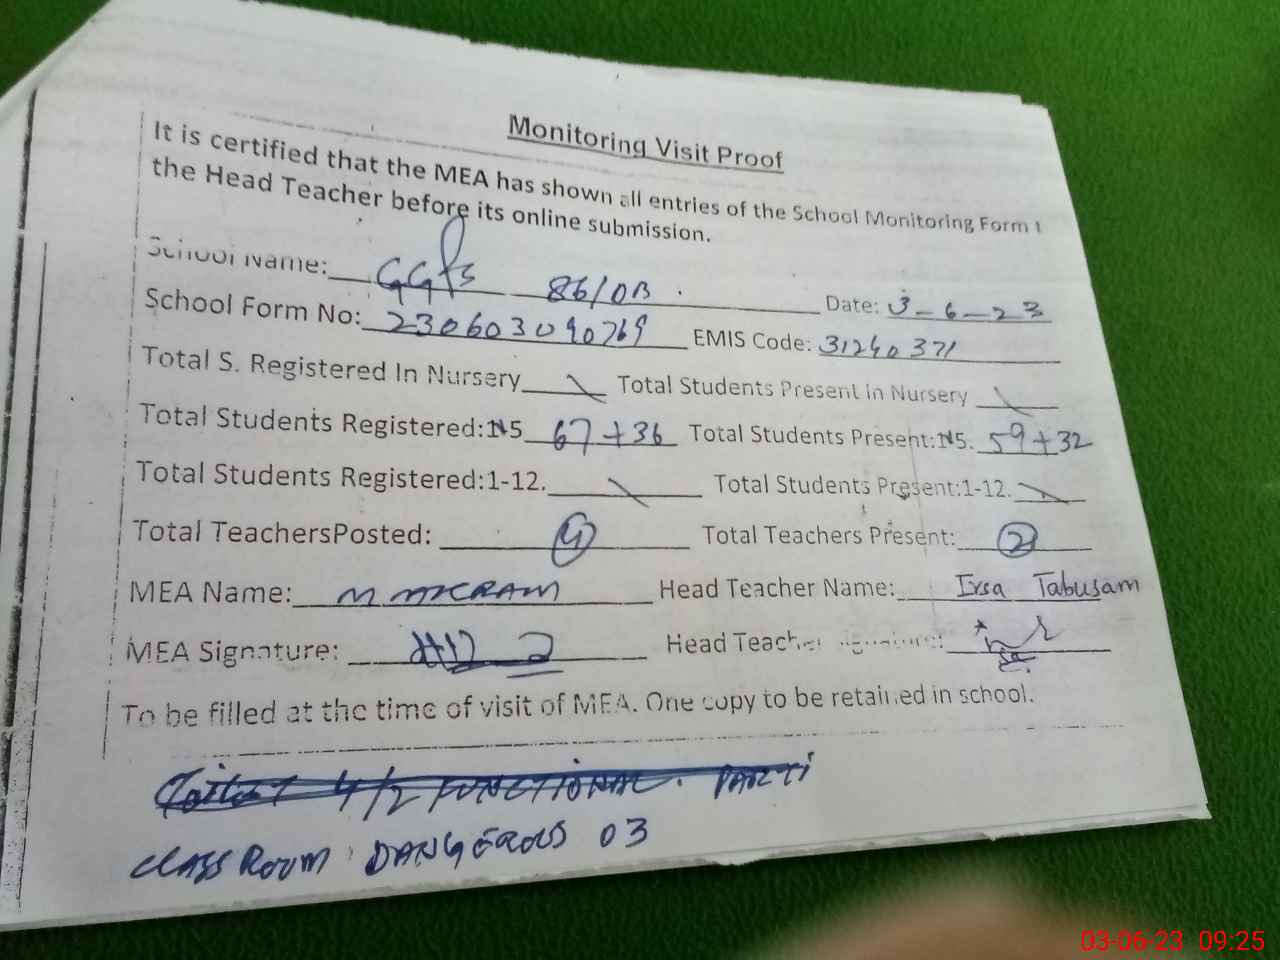 Monitoring Visit Proof
It is certified that the MEA has shown all entries of the School Monitoring Form t
the Head Teacher before its online submission.
School Name: GGPS 86/DB . Date: 3-6-23
School Form No: 230603090769 EMIS Code: 31240371
Total S. Registered In Nursery Total Students Present in Nursery
Total Students Registered:N5 67+36 Total Students Present:N5. 59+32
Total Students Registered:1-12. Total Students Present:1-12.
Total TeachersPosted: 4 Total Teachers Present: 2
MEA Name: M Head Teacher Name: Irsa Tabusam
MEA Signature: Head Teacher Signature:
To be filled at the time of visit of MEA. One copy to be retained in school.
Toilet 4/2 FUNCTIONAL.
CLASS ROOM DANGEROUS 03
03-06-23 09:25